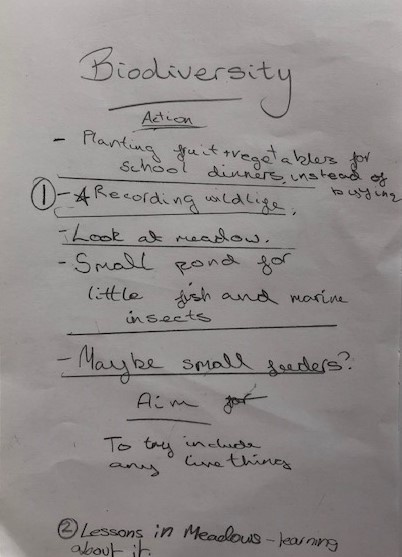 Biodiversity
Action
- Planting fruit + vegetables for
school dinners, instead of
buying
① - * Recording wildlife.
- Look at meadow.
- Small pond for
little fish and marine
insects
- Maybe small feeders?
Aim for
To try include
any live things
② Lessons in Meadows - learning
about it.